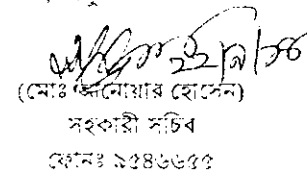 ২২/৯/১৪
(মোঃ আনোয়ার হোসেন)
সহকারী সচিব
ফোনঃ ৯৫৪৬৬৫৫